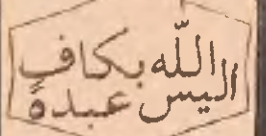 اليس اللّه بكافٍ
عبدهٗ